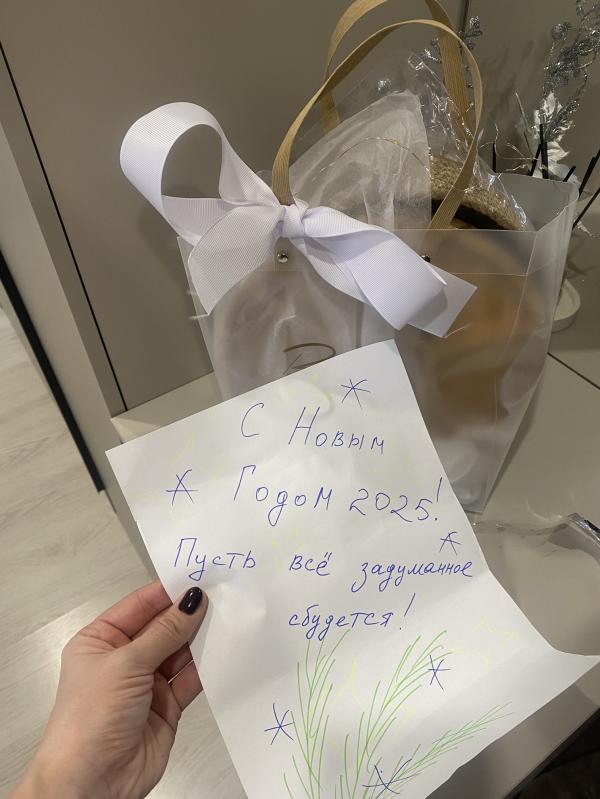 С Новым
Годом 2025!
Пусть всё задуманное
сбудется!